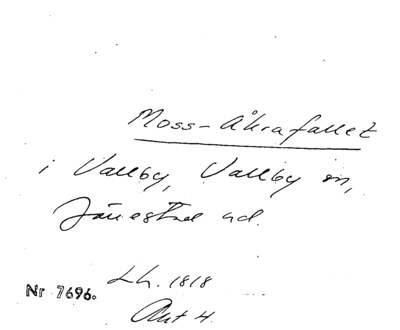 Moss-Åkrafallet
i Vallby, Vallby sn,
Järrestad hd.
Lh. 1818
Nr 7696.
Akt 4.